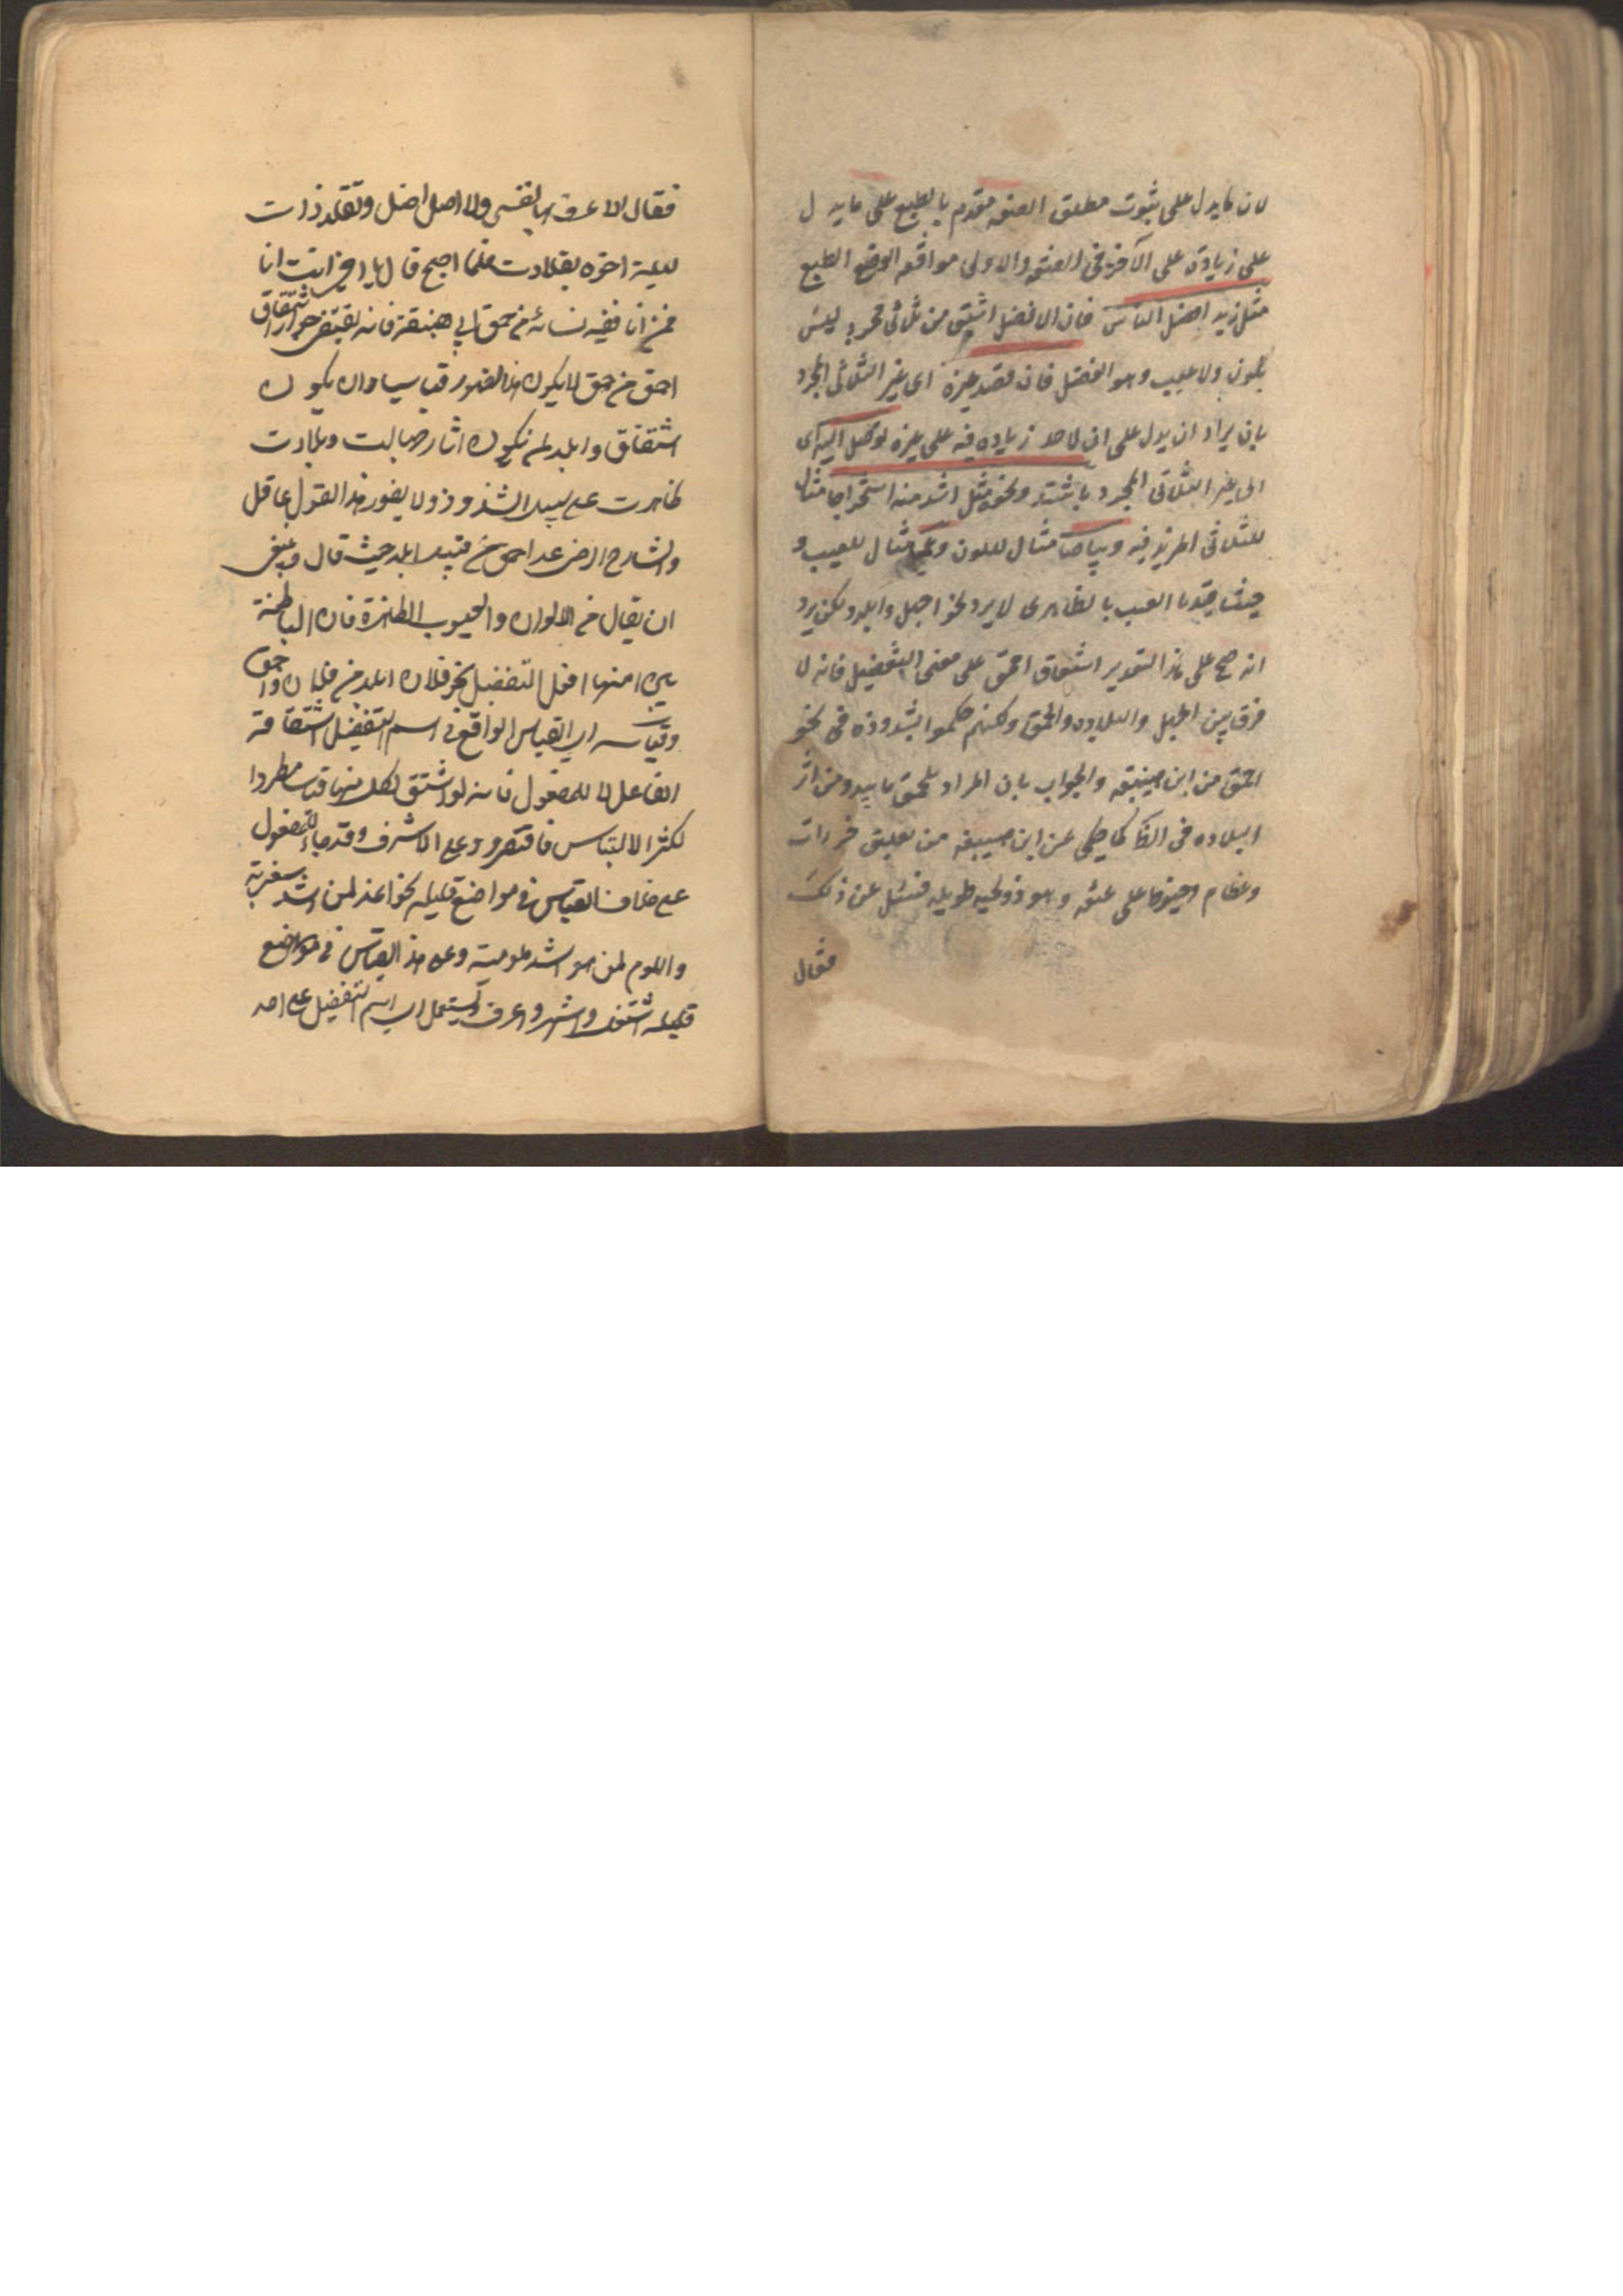 لان ما يدل على ثبوت مطلق الصفه مقدم بالطبع على ما يدل
على زيادة على الآخر فى الصفه والاولى موافقه الوضع الطبع
مثل زيد افضل الناس فان الافضل اشتق من ثلاثى مجرد ليس
بلون ولا عيب وهو الفضل فان قصد غيره اى غير الثلاثى المجرد
بان يراد ان يدل على ان لاحد زياده فيه على غيره توصل اليه اى
الى غير الثلاثى المجرد باشد ونحوه مثل اشد منه استخراجا مثال
للثلاثى المزيد فيه وبياضا مثال للون وعمى مثال للعيب و
حيث قيدنا العيب بالظاهرى لا يرد نحو اجهل وابلد ولكن يرد
انه صح على هذا التقدير اشتقاق احمق على معنى التفضيل فانه لا
فرق بين الجهل والبلاده والحمق ولكنهم حكموا بشذوذه فى نحو
احمق من ابن هبنقه والجواب بان المراد بالحمق ما يبدو من اثر
البلاده فى الظا كما حكى عن ابن هبنقه من تعليق خرزات
وعظام وخيوط على عنقه وهو ذو لحيه طويله فسئل عن ذلك
فقال
فقال لاعرف بها نفسى ولا اضل وتقلد ذات
ليلة اخوه بقلادته فلما اصبح قال يا اخى انت انا
فمن انا ففيه شائبة من حمق ابى هبنقة فانه يقتضى جواز اشتقاق
احمق من حمق لا يكون بهذا الظهور قياسيا وان يكون
اشتقاق وابلد لم يكون اثار جهالته وبلادته
ظاهرة على سبيل الشذوذ ولا يفوه بهذا القول عاقل
والشارح الرضى عد احمق من قبيل ابلد حيث قال وينبغى
ان يقال من الالوان والعيوب الظاهرة فان الباطنة
يبنى منها افعل التفضيل نحو فلان ابلد من فلان واحمق
وقياسه اى القياس الواقع فى اسم التفضيل اشتقاقه
الفاعل لا للمفعول فانه لو اشتق لكل منهما قياسا مطردا
لكثر الالتباس فاقتصروا على الاشرف وقد جاء للمفعول
على خلاف القياس فى مواضع قليله نحو اعذر لمن اشد معذورية
والوم لمن هو اشد ملومية وعلى هذا القياس فى مواضع
قليله اشغل واشهر واعرف ويستعمل اى اسم التفضيل على احد